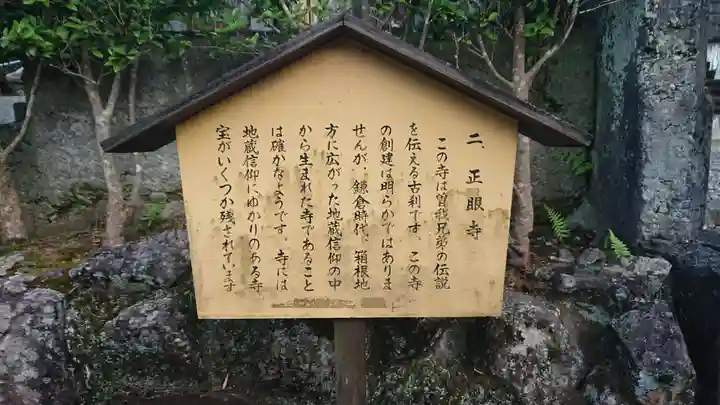 二、正眼寺
この寺は曽我兄弟の伝説
を伝える古刹です。この寺
の創建は明らかではありま
せんが、鎌倉時代、箱根地
方に広がった地蔵信仰の中
から生まれた寺であること
は確かなようです。寺には
地蔵信仰にゆかりのある寺
宝がいくつか残されています